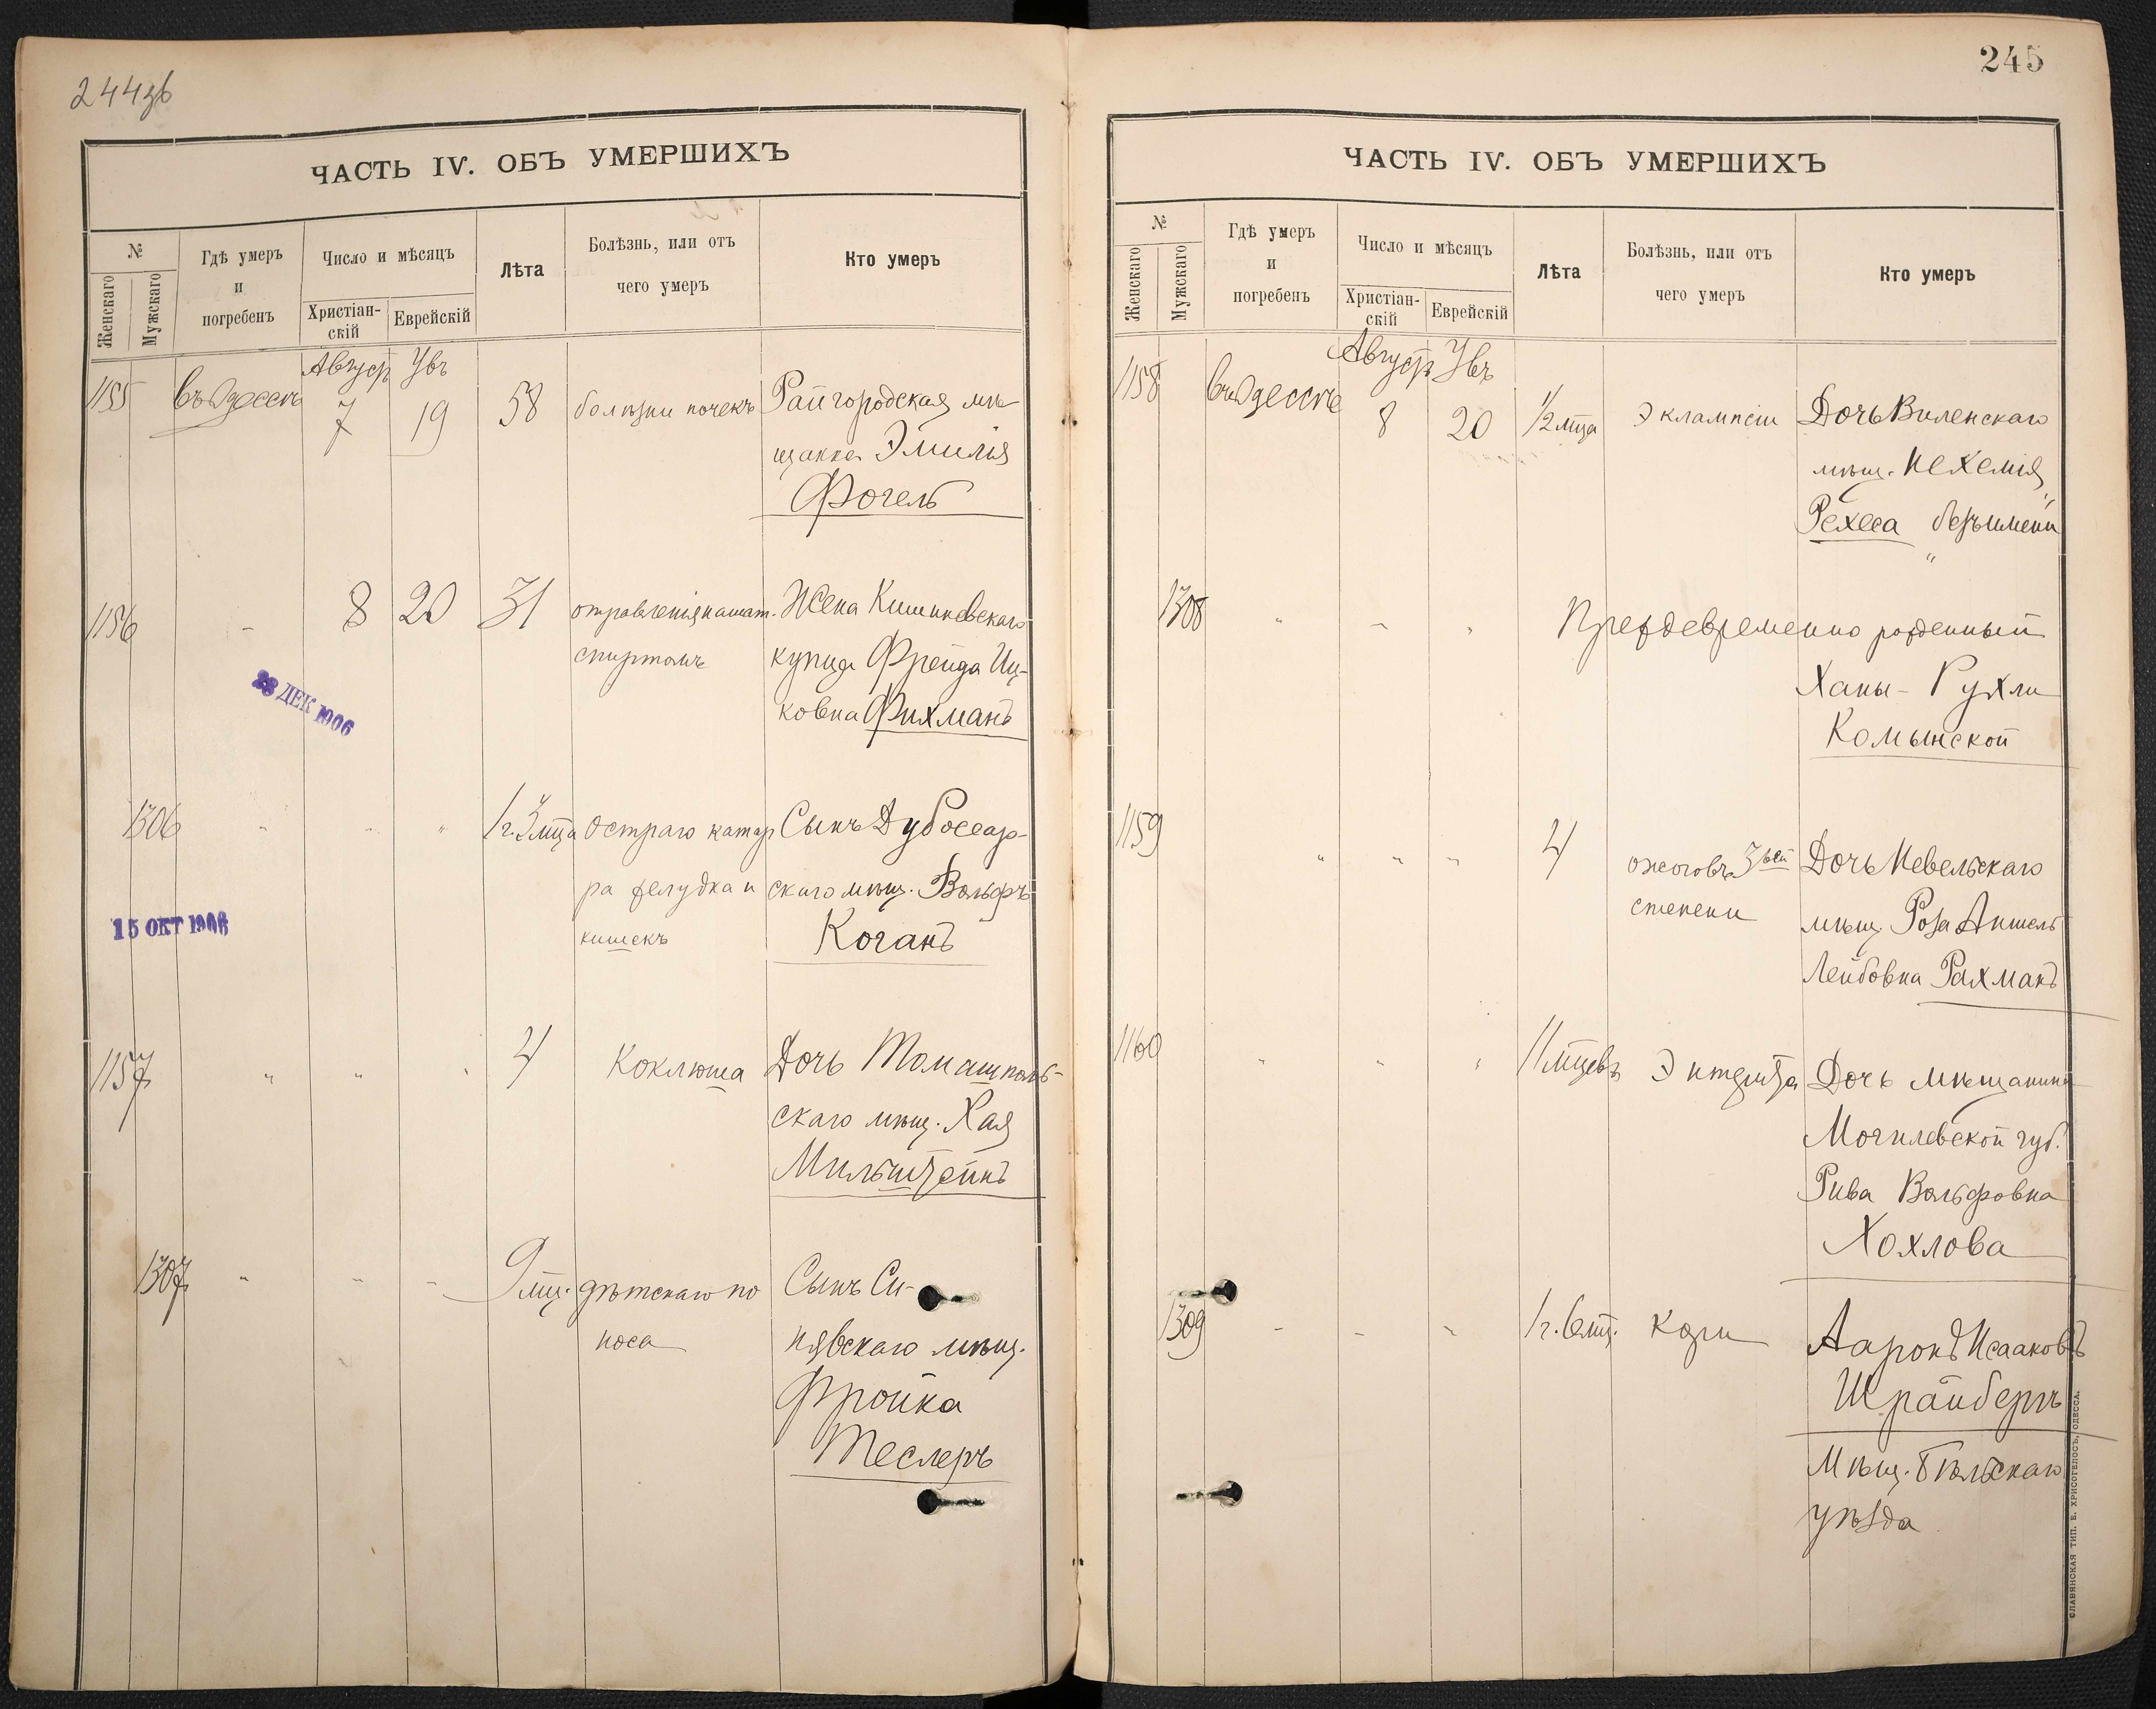 244зв
ЧАСТЬ IV. ОБЪ УМЕРШИХЪ
№
Женскаго
Мужскаго
Гдѣ умеръ
и
погребенъ
Число и мѣсяцъ
Христіан-
скій
Еврейскій
Лѣта
Болѣзнь, или отъ
чего умеръ
Кто умеръ
Август Увъ
1155 въ Одессѣ 7 19 58 болѣзни почекъ Райгородская мѣ
щанка Эмилія
Фогель
1156 8 20 31 отравленія нашат. Жена Кишиневскаго
спиртомъ купца Фрейда Иц-
ковна Фихманъ
28 ДЕК 1906
1306 " " " 1 г. 3 мца остраго катар Сынъ Дубоссар-
ра желудка и скаго мѣщ. Вольфъ
кишекъ Коганъ
15 ОКТ 1906
1157 " " " 4 Коклюша Дочь Томашполь-
скаго мѣщ. Хая
Мильштейнъ
1307 " " " 9 мц. дѣтскаго по Сынъ Си-
носа нявскаго мѣщ.
Фройка
Теслеръ
245
ЧАСТЬ IV. ОБЪ УМЕРШИХЪ
№
Женскаго
Мужскаго
Гдѣ умеръ
и
погребенъ
Число и мѣсяцъ
Христіан-
скій
Еврейскій
Лѣта
Болѣзнь, или отъ
чего умеръ
Кто умеръ
Август Увъ
1158 въ Одессѣ 8 20 1/2 мца Эклампсіи Дочь Виленскаго
мѣщ. Нехемія
Рехеса "безъимени"
1308 " " " Преждевременно рожденный
Ханы-Рухли
Комынской
1159 " " " 4 ожоговъ 3ьей Дочь Невельскаго
степени мѣщ. Роза Аншель
Лейбовна Рахманъ
1160 " " " 11 мцевъ Энтерита Дочь мѣщанина
Могилевской губ.
Рива Вольфовна
Хохлова
1309 " " " 1 г. 6 мц. Кори Ааронъ Исааковъ
Шрайберъ
Мѣщ. Бѣльскаго
уѣзда
СЛАВЯНСКАЯ ТИП. Е. ХРИСОГЕЛОСЪ, ОДЕССА.